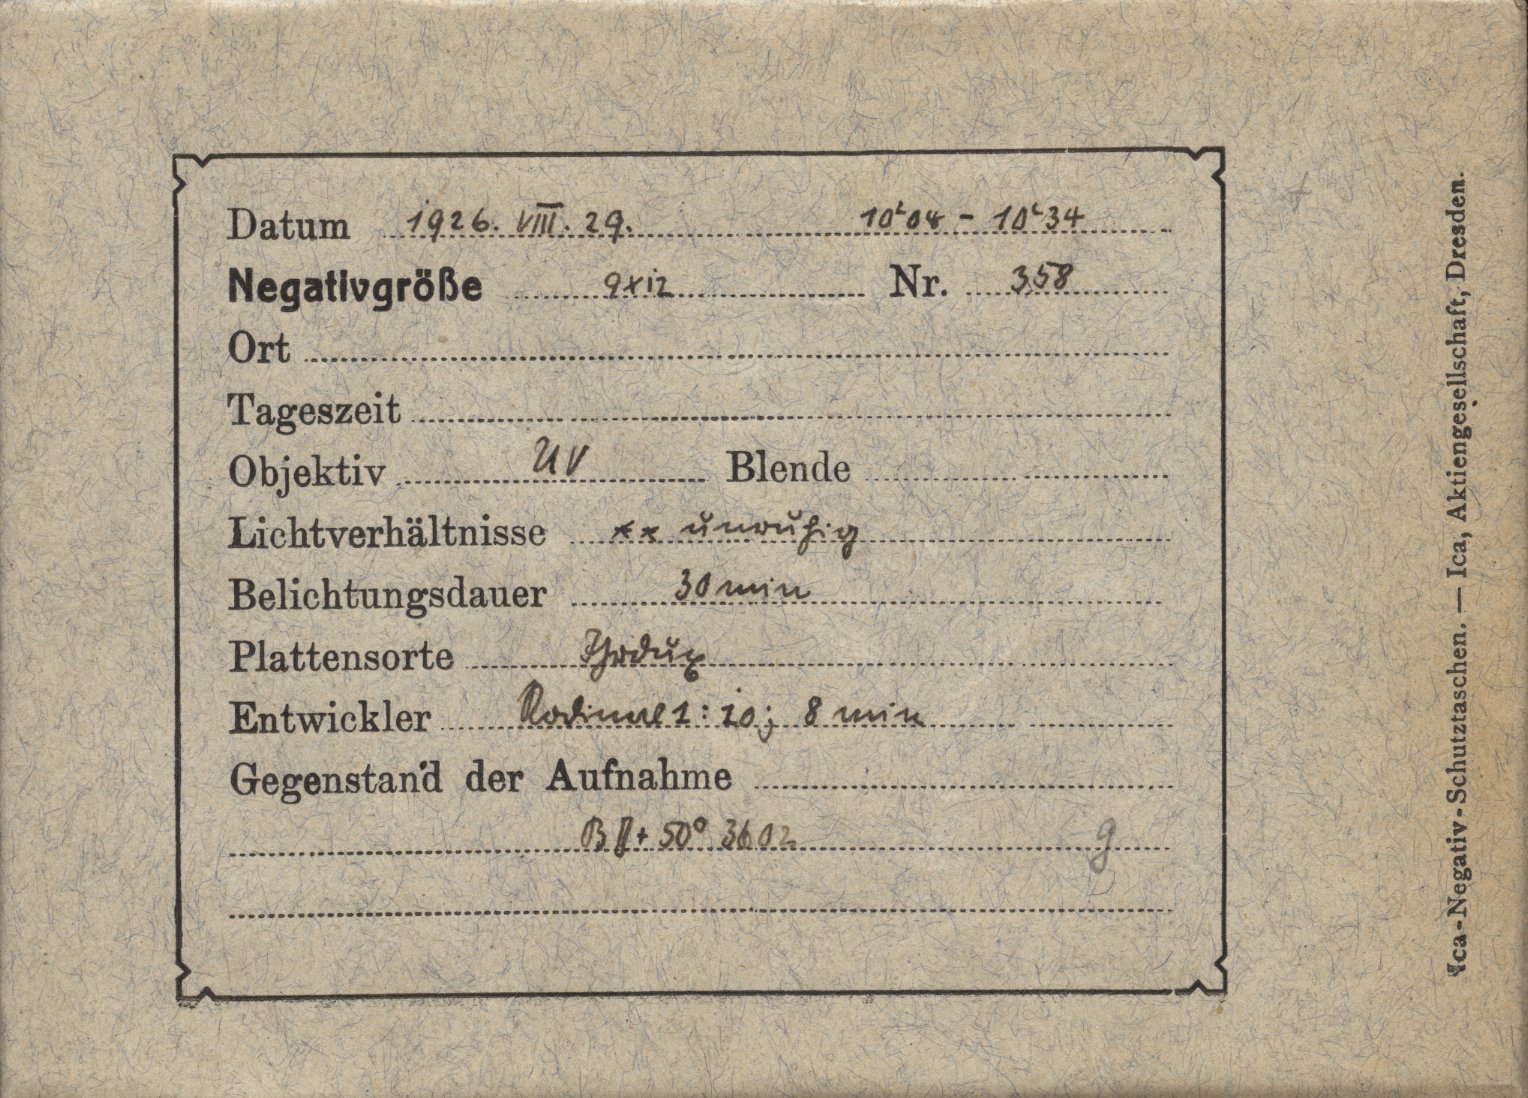 Datum 1926. VIII. 29. 10h04 - 10h34
Negativgröße 9x12 Nr. 358
Ort
Tageszeit
Objektiv UV Blende
Lichtverhältnisse xx unruhig
Belichtungsdauer 30 min
Plattensorte
Entwickler Rodinal 1:20; 8 min
Gegenstand der Aufnahme
BD + 50° 3602 g
Ica-Negativ-Schutztaschen. — Ica, Aktiengesellschaft, Dresden.